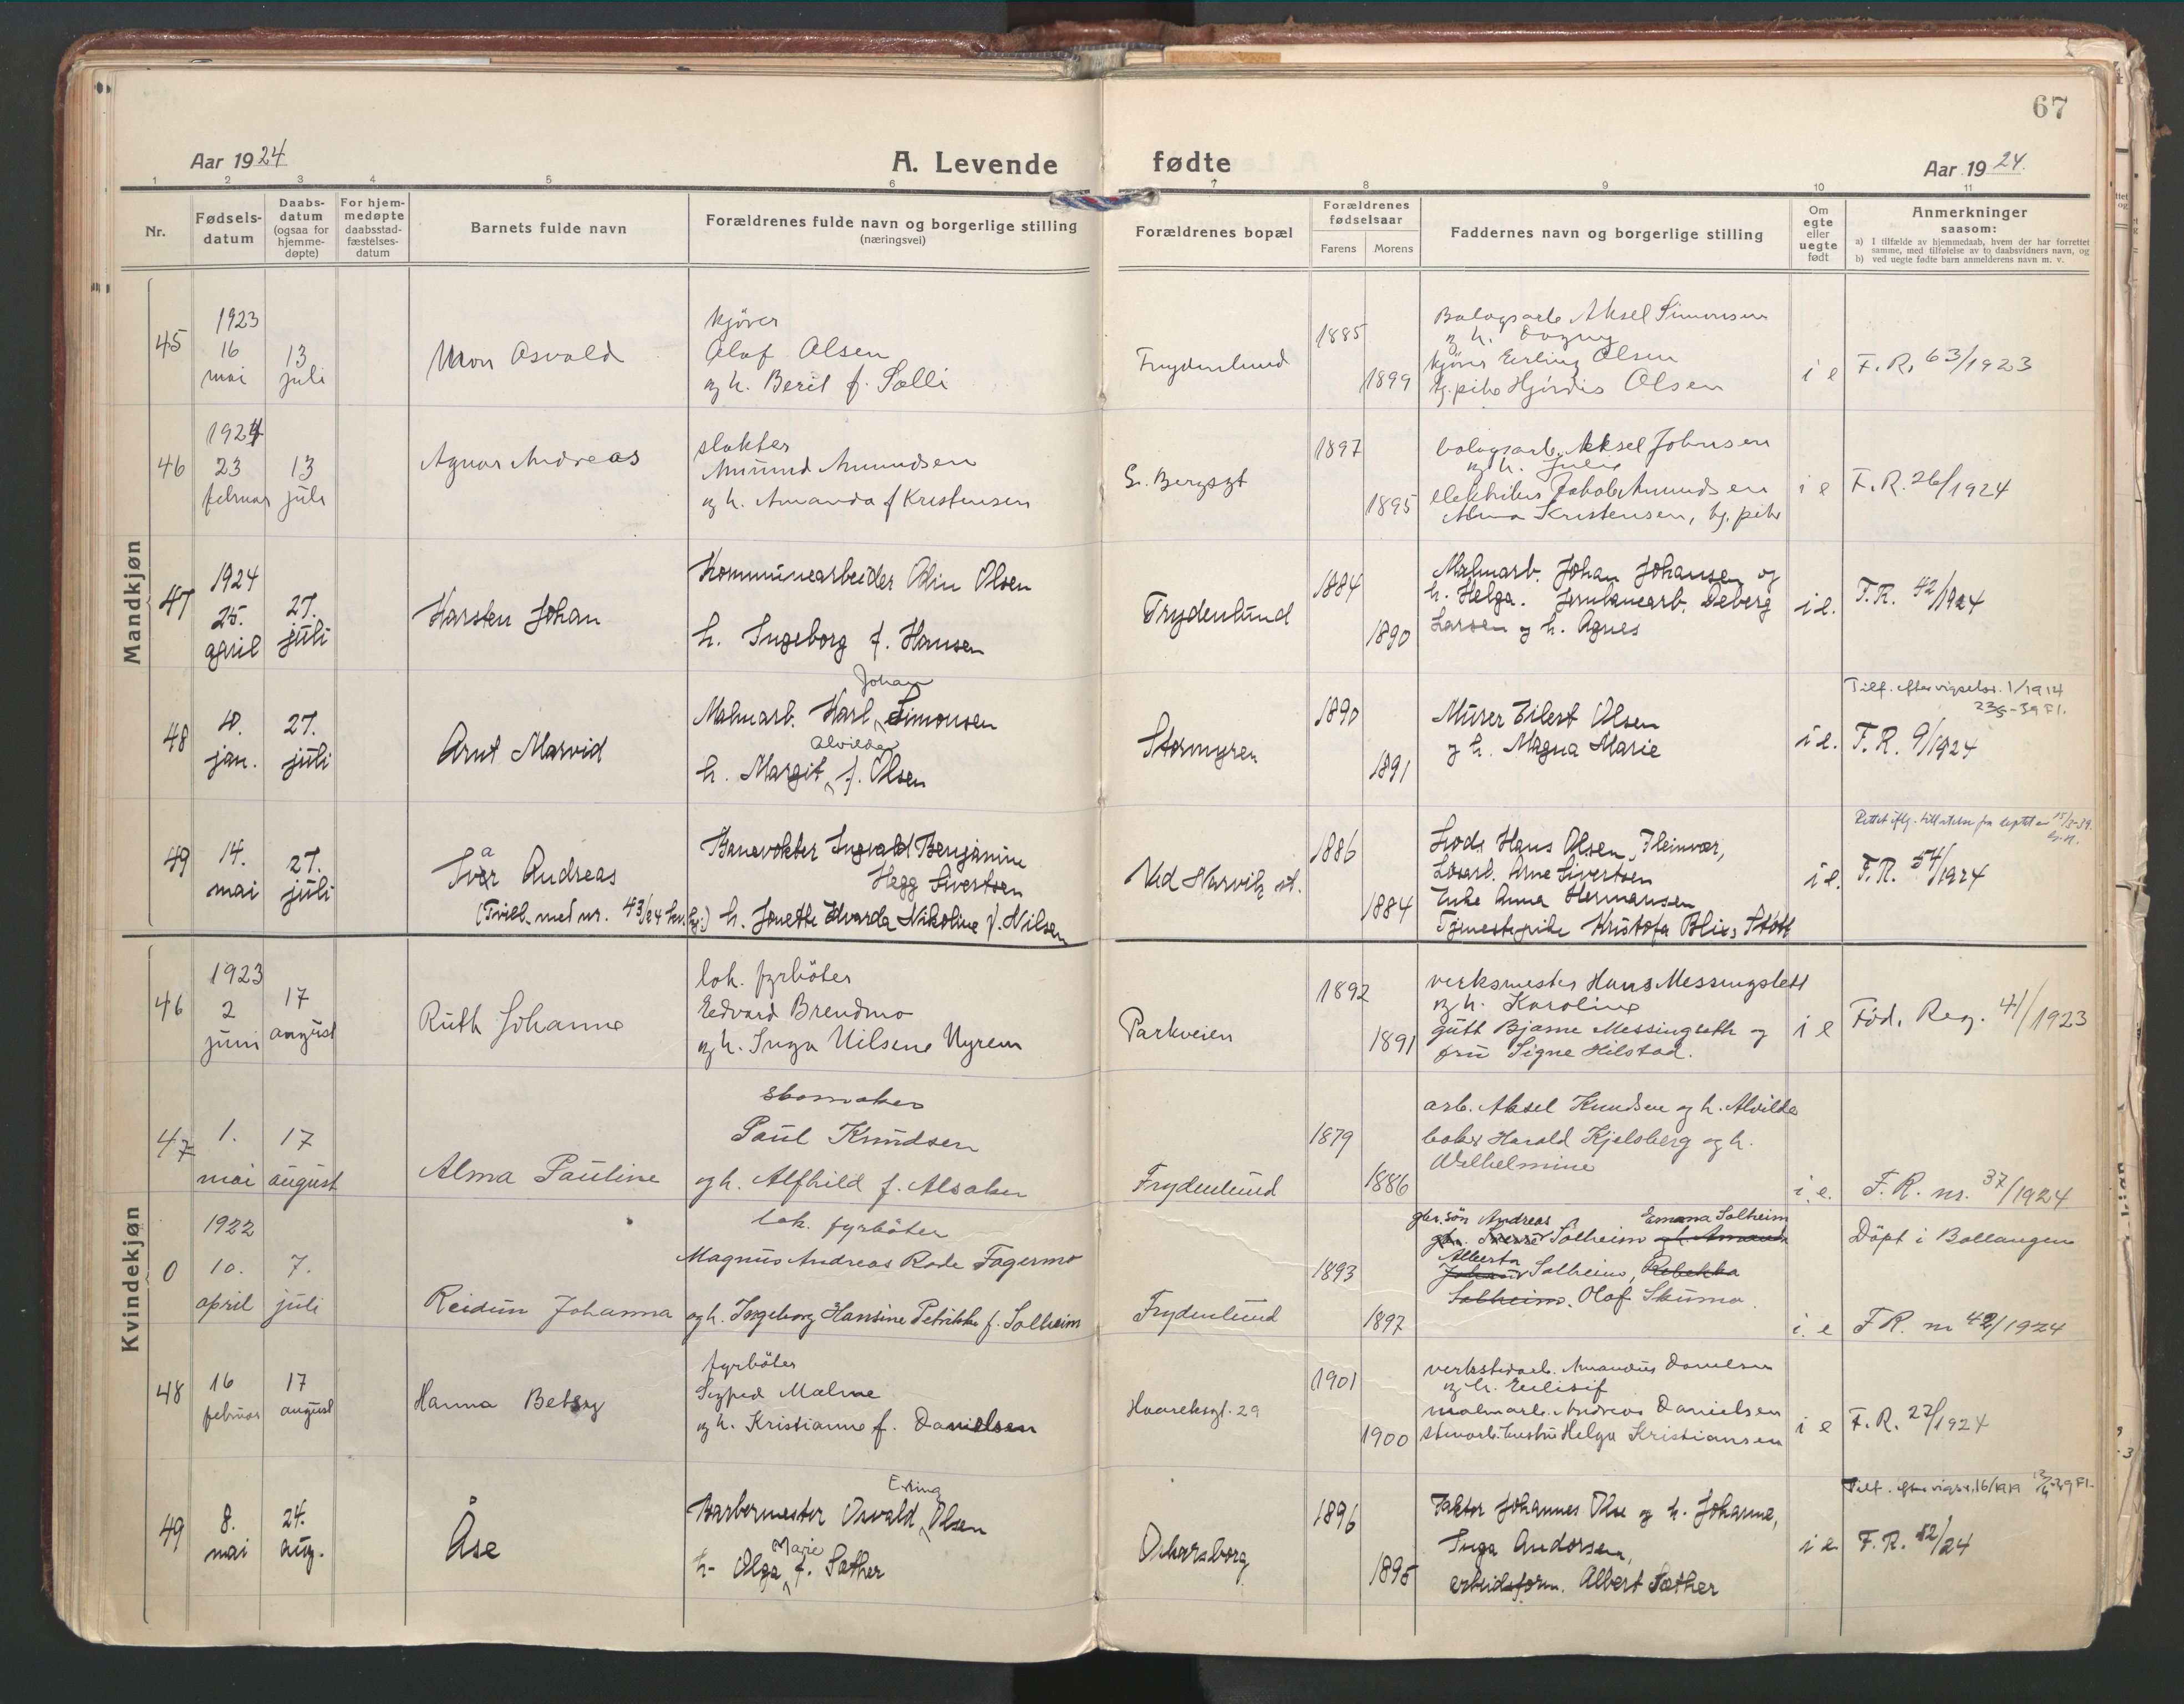 67
Aar 1924
A. Levende fødte
Aar 1924.
1 2 3 4 5 6 7 8 9 10 11
Nr.
Fødsels-
datum
Daabs-
datum
(ogsaa for
hjemme-
døpte)
For hjem-
medøpte
daabsstad-
fæstelses-
datum
Barnets fulde navn
Forældrenes fulde navn og borgerlige stilling
(næringsvei)
Forældrenes bopæl
Forældrenes
fødselsaar
Farens Morens
Faddernes navn og borgerlige stilling
Om
egte
eller
uegte
født
Anmerkninger
saasom:
a) I tilfælde av hjemmedaab, hvem der har forrettet
samme, med tilføielse av to daabsvidners navn, og
b) ved uegte fødte barn anmelderens navn m. v.
Mandkjøn
45
1923
16
mai
13
juli
Osvald
kjører
Olaf Olsen
og h. Berit f. Solli
Frydenlund
1885
1899
Aksel Simonsen
og h. Dagny
kjører Erling Olsen
tj.pike Hjördis Olsen
i e
F. R. 63/1923
46
1924
23
februar
13
juli
Agnar Andreas
slakter
Amund Amundsen
og h. Amanda f Kristensen
1897
1895
Aksel Johnsen
og h. Julie
Jakob Amundsen
Alma Kristensen, tj. pike
i e
F. R. 26/1924
47
1924
25.
april
27.
juli
Karsten Johan
Kommunearbeider Odin Olsen
h. Ingeborg f. Hansen
Frydenlund
1884
1890
Malmarb. Johan Johansen og
h. Helga. Jernbanearb. Deberg
Larsen og h. Agnes
i e.
F. R. 42/1924
48
jan.
27.
juli
Arnt Marvid
Johan
Malmarb. Karl Simonsen
Alvilde
h. Margit f. Olsen
Stormyren
1890
1891
Murer Eilert Olsen
og h. Magna Marie
i e.
Tilf. efter vigselsr. 1/1914
23/5-39 Fl.
F. R. 9/1924
49
14.
mai
27.
juli
a
Ivar Andreas
(Tvill. med nr. 43/24 kv.kj.)
Banevokter Ingvald Benjamin
Hegg Sivertsen
h. Jonette Edvarda Nikoline f. Nilsen
Ved Narvik st.
1886
1884
Lods Hans Olsen, Fleinvær,
Løsarb. Arne Sivertsen
Enke Anna Hermansen
Tjenestepike Kristofa Blix, Støtt
i e.
F. R. 54/1924
Kvindekjøn
46
1923
2
juni
17
august
Ruth Johanne
lok. fyrböter
Edvard Brendmo
og h. Inga Nilsene Nyrem
Parkveien
1892
1891
verksmester Hans Messingslett
og h. Karoline
gutt Bjarne Messingseth og
fru Signe Hilstad.
i e
Fød. Reg. 41/1923
47
1.
mai
17
august
Alma Pauline
skomaker
Paul Knudsen
og h. Alfhild f. Alsaker
Frydenlund
1879
1886
arb. Aksel Knudsen og h. Alvilde
baker Harald Kjelsberg og h.
Wilhelmine
i. e.
F. R. nr. 37/1924
0
1922
10.
april
7.
juli
Reidun Johanna
lok. fyrböter
Magnus Andreas Rode Fagermo
og h. Ingeborg Hansine Petrikke f. Solheim
Frydenlund
1893
1897
gbr.søn Andreas Emma Solheim
Solheim
Alberta
Solheim, Rebekka
Solheim. Olaf Skumo.
i. e
Döpt i Ballangen
F R. nr 42/1924
48
16
februar
17
august
Hanna Betsy
fyrböter
Sigfred Malme
og h. Kristianne f. Danielsen
Haareksgt. 29
1901
1900
verkstedarb. Amandus Danielsen
og h. Eilisif
malmarb. Andreas Danielsen
Helga Kristiansen
i e
F. R. 27/1924
49
8.
mai
24.
aug.
Åse
Barbermester Osvald Olsen
Marie
h. Olga f. Sæther
Oskarsborg
1896
1895
Faktor Johannes Olse og h. Johanne,
Inga Andorsen,
arbeidsform. Albert Sæther
i e
F. R. 52/24